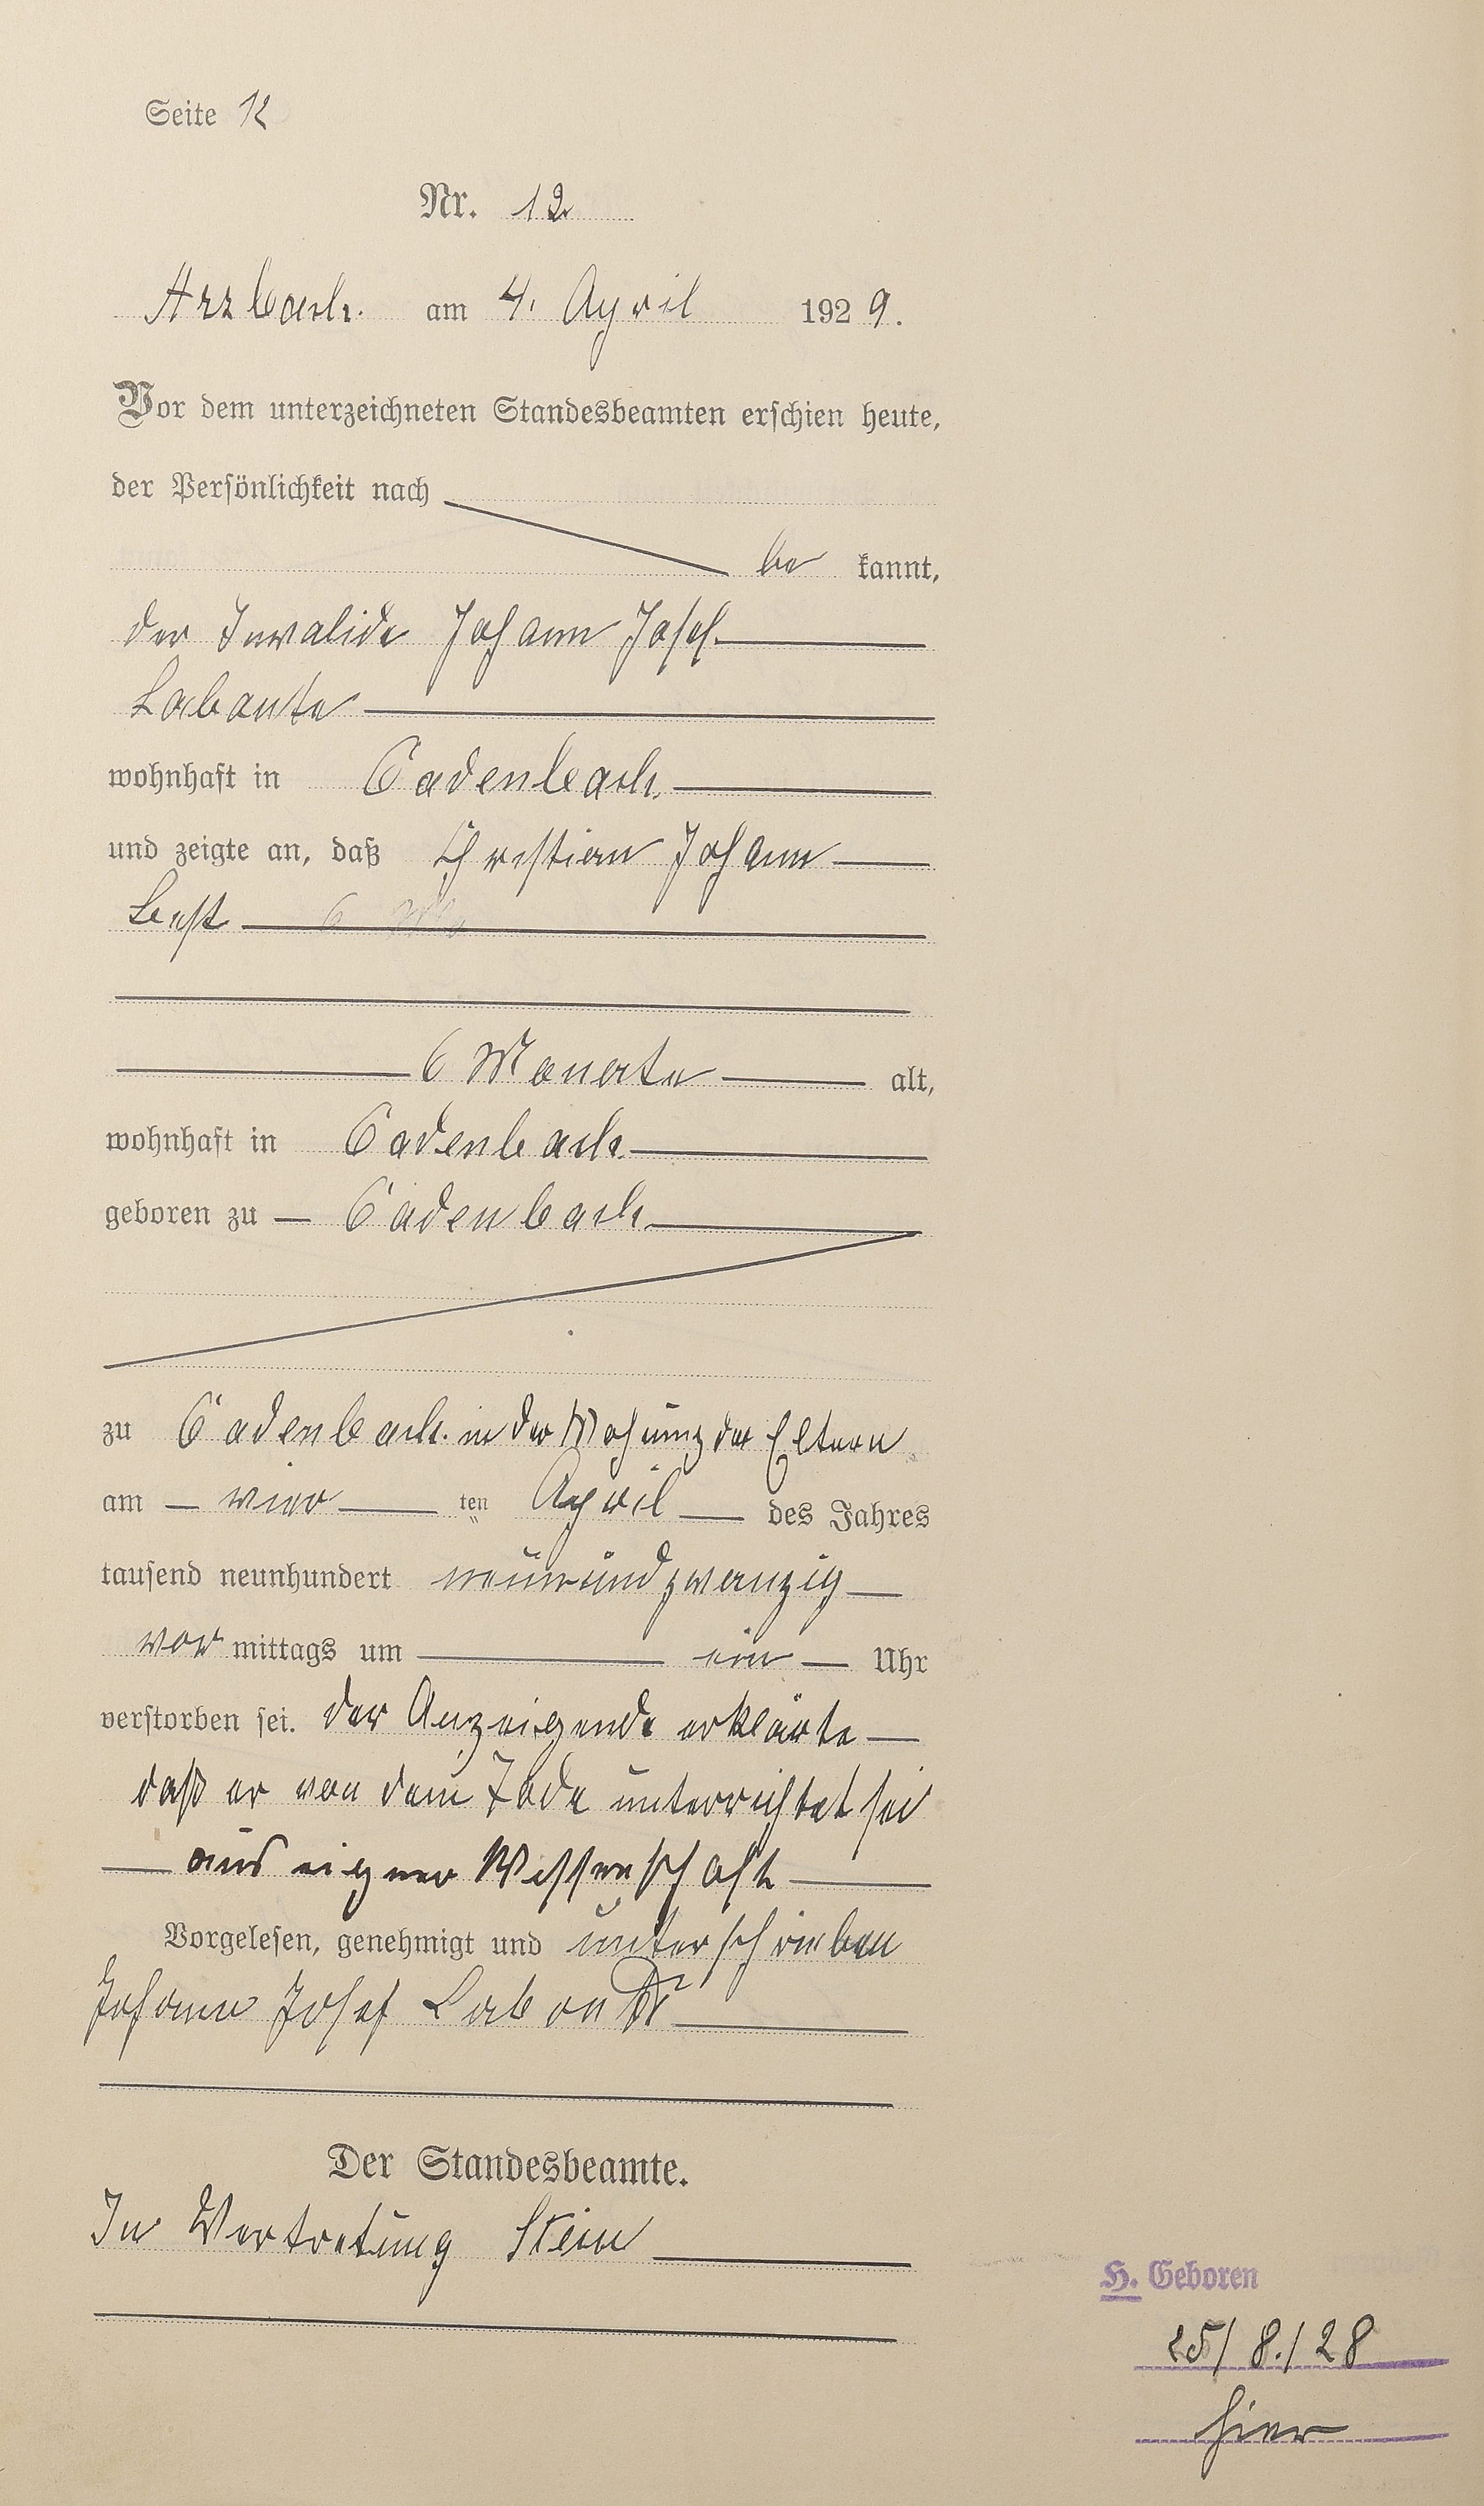 Seite 12
Nr. 12
Arzbach am 4. April 1929.
Vor dem unterzeichneten Standesbeamten erschien heute,
der Persönlichkeit nach
be kannt,
der Invalide Johann Josef
Labonte
wohnhaft in Cadenbach
und zeigte an, daß Christian Johann
Best
6 Monate alt,
wohnhaft in Cadenbach
geboren zu Cadenbach
zu Cadenbach in der Wohung der Eltern
am vier ten April des Jahres
tausend neunhundert neunundzwanzig
vor mittags um ein Uhr
verstorben sei. Der Anzeigende erklärte
daß er von dem Tode unterrichtet sei
aus eigner Wissenschaft
Vorgelesen, genehmigt und unterschrieben
Johann Josef
Der Standesbeamte.
In Vertretung Stein
H. Geboren
25/8./28
hier